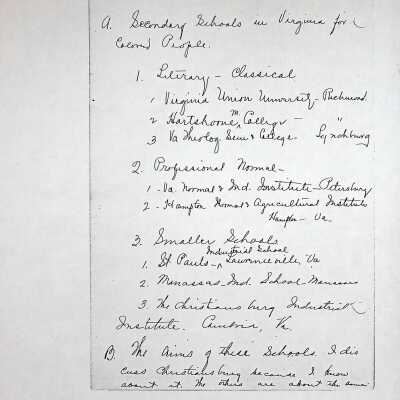 A. Secondary Schools in Virginia for
Colored People.
1. Literary – Classical
1 Virginia Union University – Richmond.
2 Hartshorne M. College – "
3 Va Theolog Sem & College – Lynchburg
2. Professional Normal –
1 – Va. Normal & Ind. Institute – Petersburg
2 – Hampton Normal & Agricultural Institute
Hampton – Va.
3. Smaller Schools
1. St Pauls – Industrial School Lawrenceville, Va
2. Manassas Ind. School – Manassas
3. The Christiansburg Industrial
Institute. Cambria, Va.
B. The Aims of these Schools. I dis
cuss Christiansburg because I know
about it. The others are about the same